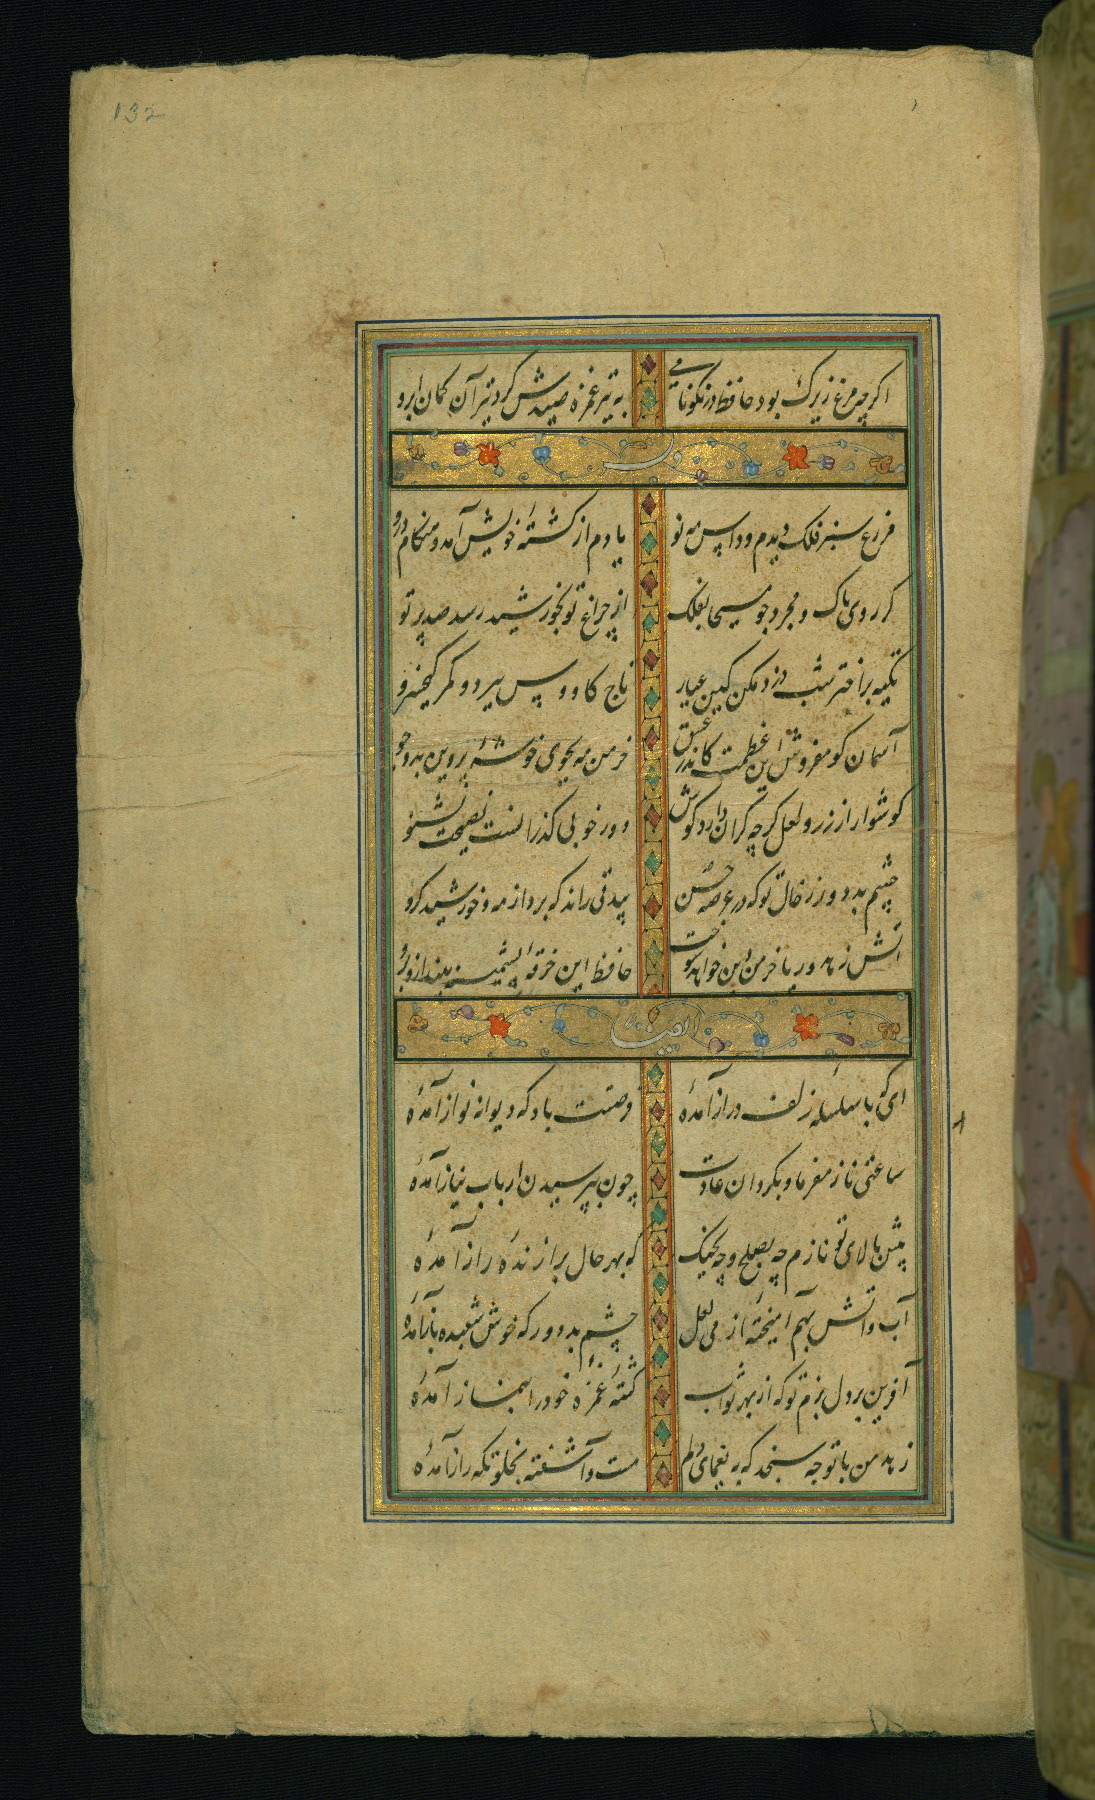 132
اگرچه مرغ زیرک بود حافظ در نکونامی به تیر غمزه صیدش کرد تیر آن کمان ابرو
وله
مزرع سبز فلک دیدم و داس مه نو یادم از کشتهٔ خویش آمد و هنگام درو
گر روی پاک و مجرد چو مسیحا بفلک از چراغ تو بخورشید رسد صد پرتو
تکیه بر اختر شب دزد مکن کین عیار تاج کاووس ببرد و کمر کیخسرو
آسمان گو مفروش این عظمت کاندر عشق خرمن مه بجوی خوشهٔ پروین بدو جو
گوشوار از زر و لعل گرچه گران دارد گوش دور خوبی گذرانست نصیحت بشنو
چشم بد دور ز خال تو که در عرصه حسن بیدقی راند که برد از مه و خورشید گرو
آتش زهد و ریا خرمن دین خواهد سوخت حافظ این خرقهٔ پشمینه بینداز و برو
ایضا
ای که با سلسله زلف دراز آمدهٔ فرصتت باد که دیوانه نواز آمدهٔ
ساعتی ناز مفرما و بگردان عادت چون بپرسیدن ارباب نیاز آمدهٔ
پیش بالای تو نازم چه بصلح و چه بجنگ که بهر حال برازندهٔ راز آمدهٔ
آب و آتش بهم آمیختهٔ از می لعل چشم بد دور که خوش شعبده باز آمدهٔ
آفرین بر دل نرم تو که از بهر ثواب کشتهٔ غمزهٔ خود را بنماز آمدهٔ
زهد من با تو چه سنجد که به یغمای دلم مست و آشفته بخلوتگه راز آمدهٔ